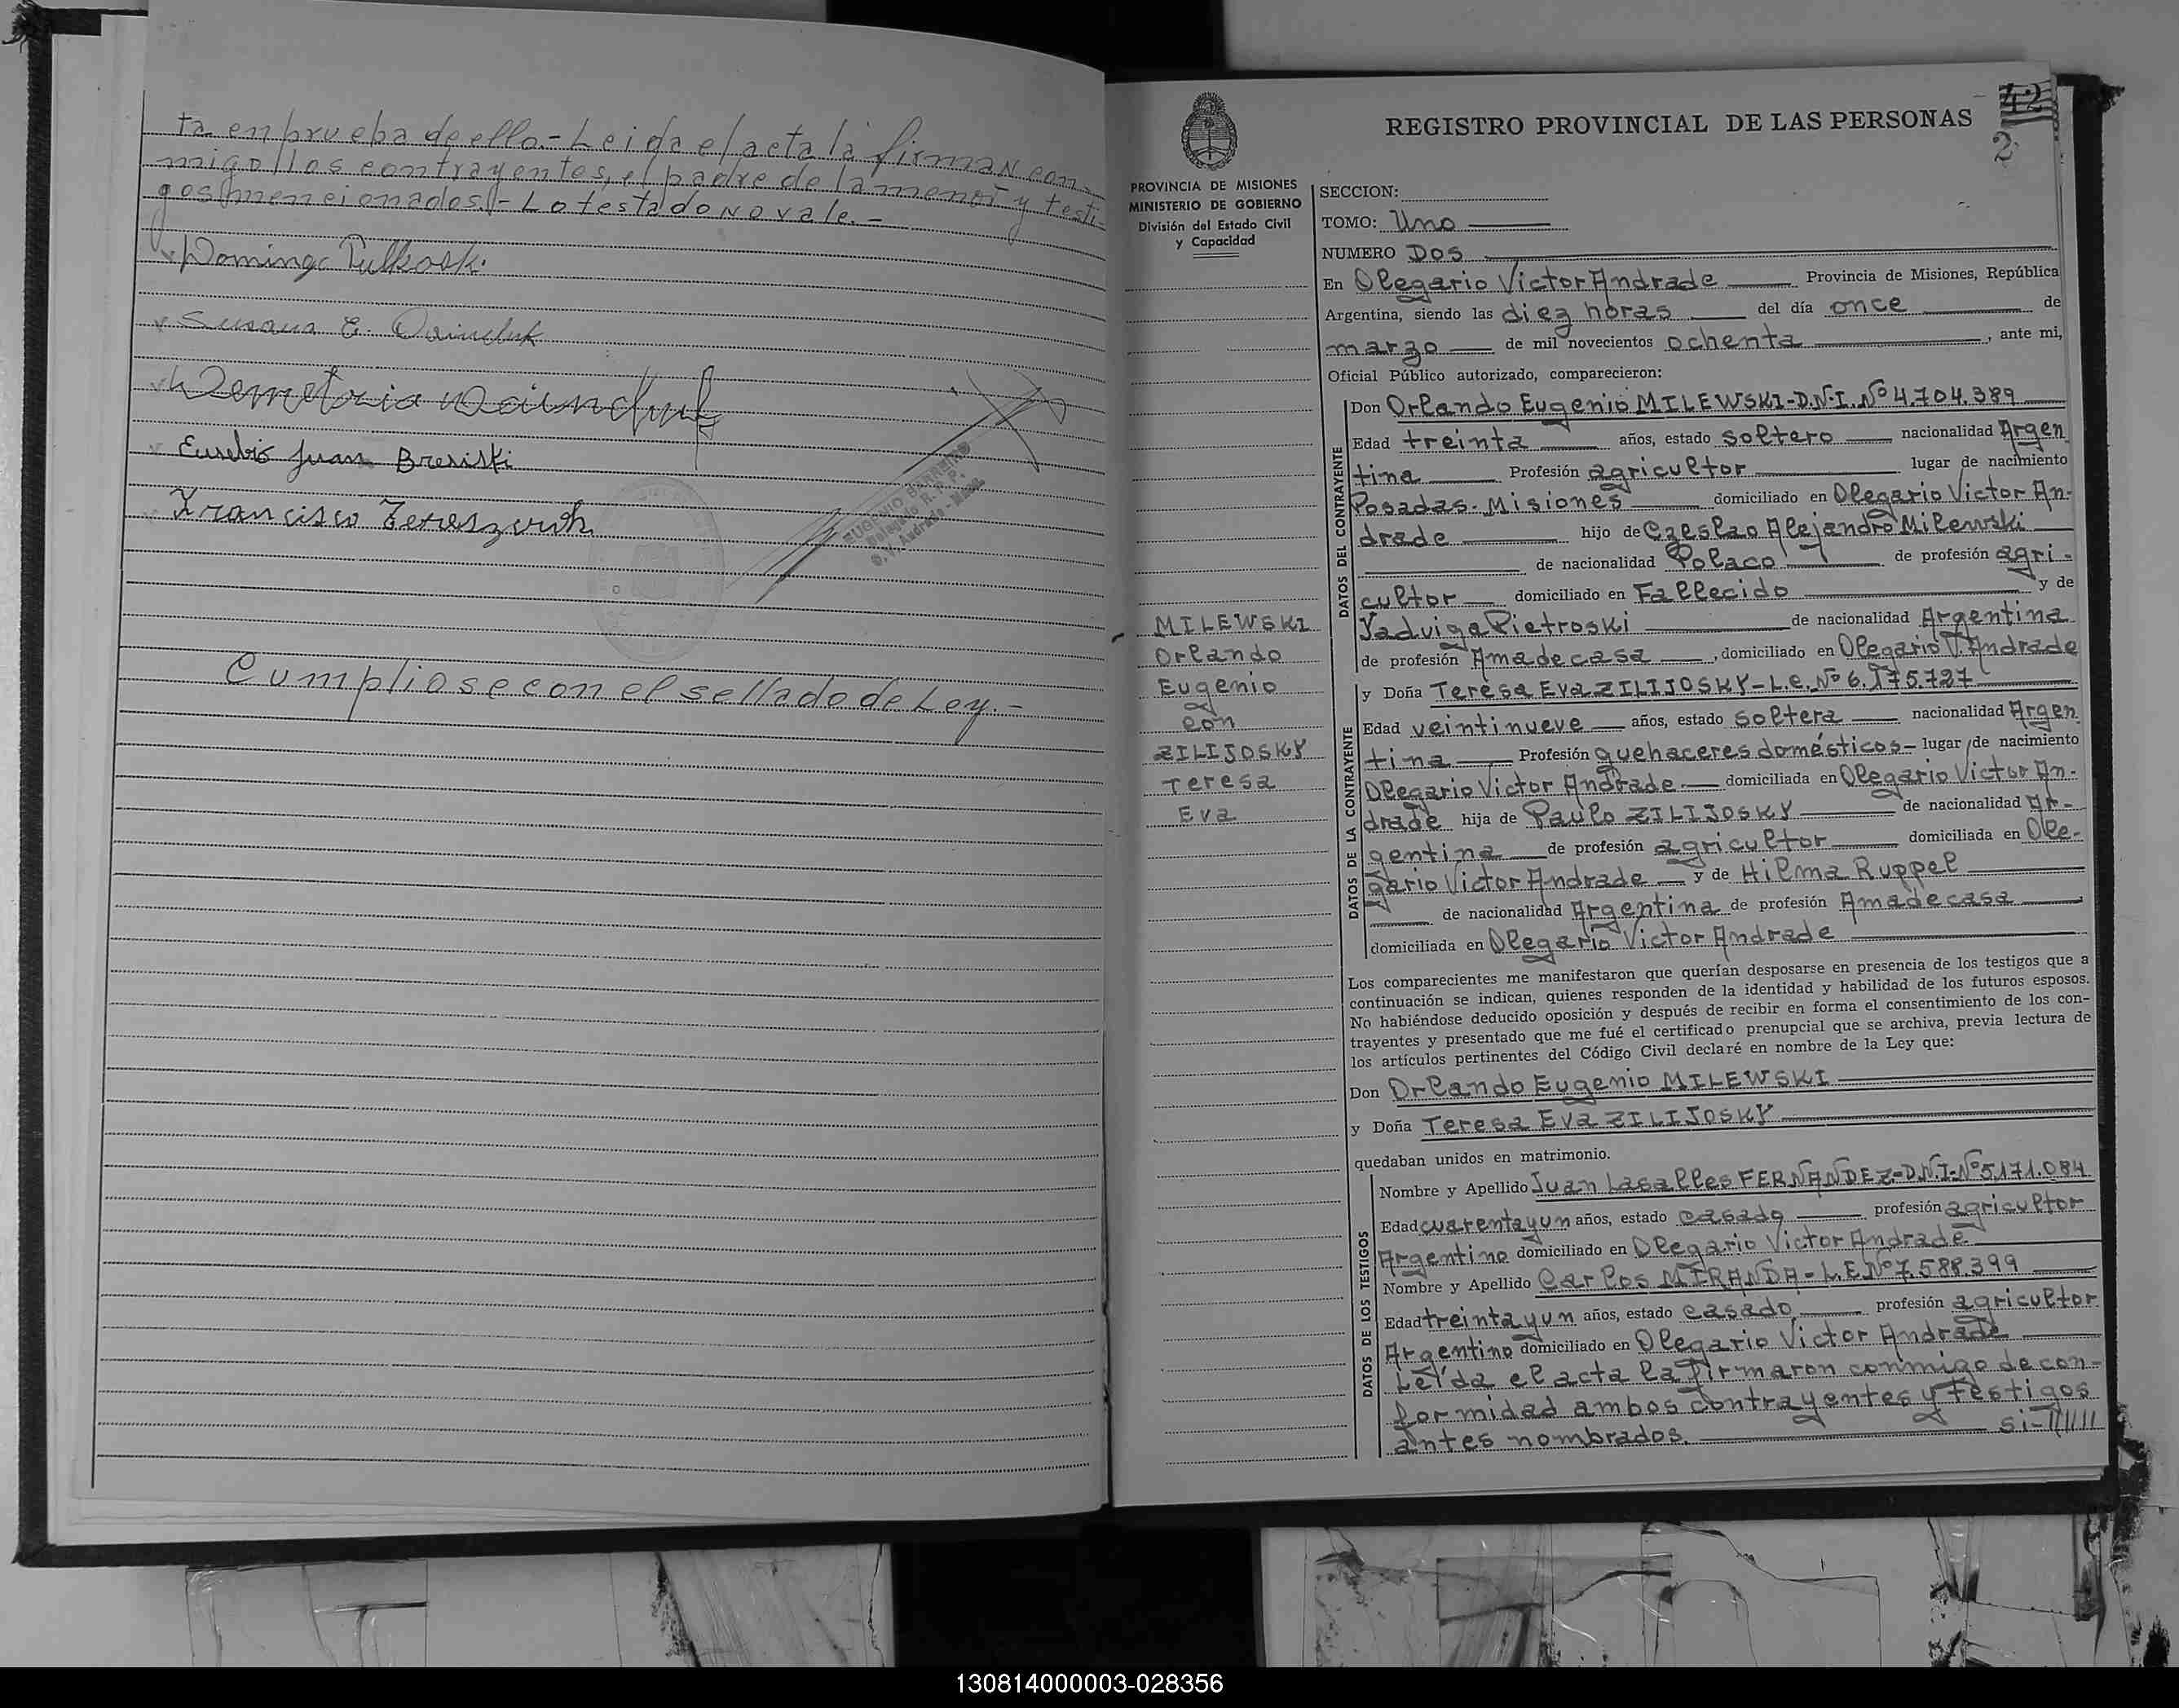 ta en prueba de ello.- Leida el acta la firman con
migo los contrayentes, el padre de la menor y testi-
gos mencionados.- Lo testado no vale.-
Susana E.
Eusebio Juan
Francisco
EUGENIO BARRETO
Delegado R.P.P.
O.V. Andrade - Mnes.
Cumpliose con el sellado de Ley.-
REGISTRO PROVINCIAL DE LAS PERSONAS
42
2
PROVINCIA DE MISIONES
MINISTERIO DE GOBIERNO
División del Estado Civil
y Capacidad
SECCION:
TOMO: Uno
NUMERO Dos
En Olegario Victor Andrade Provincia de Misiones, República
Argentina, siendo las diez horas del día once de
marzo de mil novecientos ochenta, ante mi,
Oficial Público autorizado, comparecieron:
DATOS DEL CONTRAYENTE
Don Orlando Eugenio MILEWSKI-D.N.I. Nº 4.704.389
Edad treinta años, estado soltero nacionalidad Argen
tina Profesión agricultor lugar de nacimiento
Posadas. Misiones domiciliado en Olegario Victor An-
drade hijo de Czeslao Alejandro Milewski
de nacionalidad Polaco de profesión agri-
cultor domiciliado en Fallecido y de
Yadviga Pietroski de nacionalidad Argentina
de profesión Ama de casa, domiciliado en Olegario V. Andrade
MILEWSKI
Orlando
Eugenio
con
ZILIJOSKY
Teresa
Eva
DATOS DE LA CONTRAYENTE
y Doña Teresa Eva ZILIJOSKY-L.C. Nº 6.175.787
Edad veintinueve años, estado soltera nacionalidad Argen
tina Profesión quehaceres domésticos- lugar de nacimiento
Olegario Victor Andrade.- domiciliada en Olegario Victor An-
drade hija de Paulo ZILIJOSKY de nacionalidad Ar-
gentina de profesión agricultor domiciliada en Ole-
gario Victor Andrade y de Hilma Ruppel
de nacionalidad Argentina de profesión Ama de casa
domiciliada en Olegario Victor Andrade
Los comparecientes me manifestaron que querían desposarse en presencia de los testigos que a
continuación se indican, quienes responden de la identidad y habilidad de los futuros esposos.
No habiéndose deducido oposición y después de recibir en forma el consentimiento de los con-
trayentes y presentado que me fué el certificado prenupcial que se archiva, previa lectura de
los artículos pertinentes del Código Civil declaré en nombre de la Ley que:
Don Orlando Eugenio MILEWSKI
y Doña Teresa Eva ZILIJOSKY
quedaban unidos en matrimonio.
DATOS DE LOS TESTIGOS
Nombre y Apellido Juan Lasalles FERNANDEZ-D.N.I-Nº 5.171.084
Edad cuarenta y un años, estado casado profesión agricultor
Argentino domiciliado en Olegario Victor Andrade
Nombre y Apellido Carlos MIRANDA-L.E Nº 7.588.399
Edad treinta y un años, estado casado profesión agricultor
Argentino domiciliado en Olegario Victor Andrade
Leída el acta la firmaron conmigo de con-
formidad ambos contrayentes y testigos
antes nombrados. si-//////
130814000003-028356